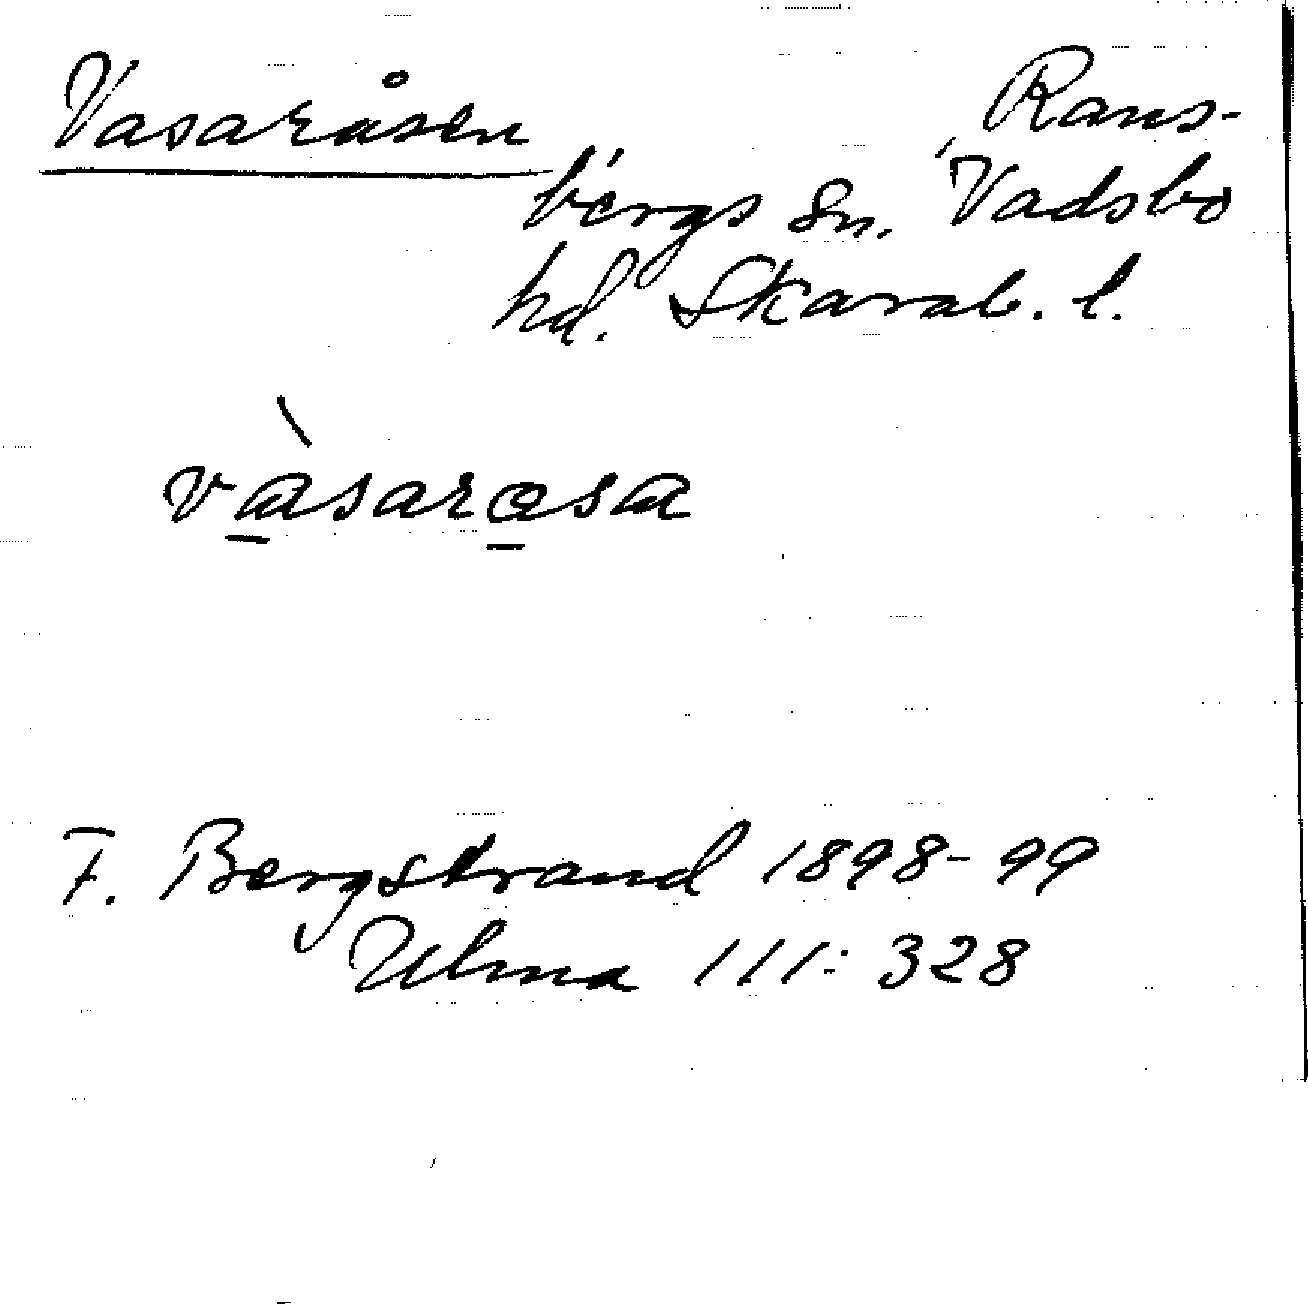 Vasaråsen
Rans-
bergs sn. Vadsbo
hd. Skarab. l.
vàsarosa
F. Bergstrand 1898-99
Ulma 111:328